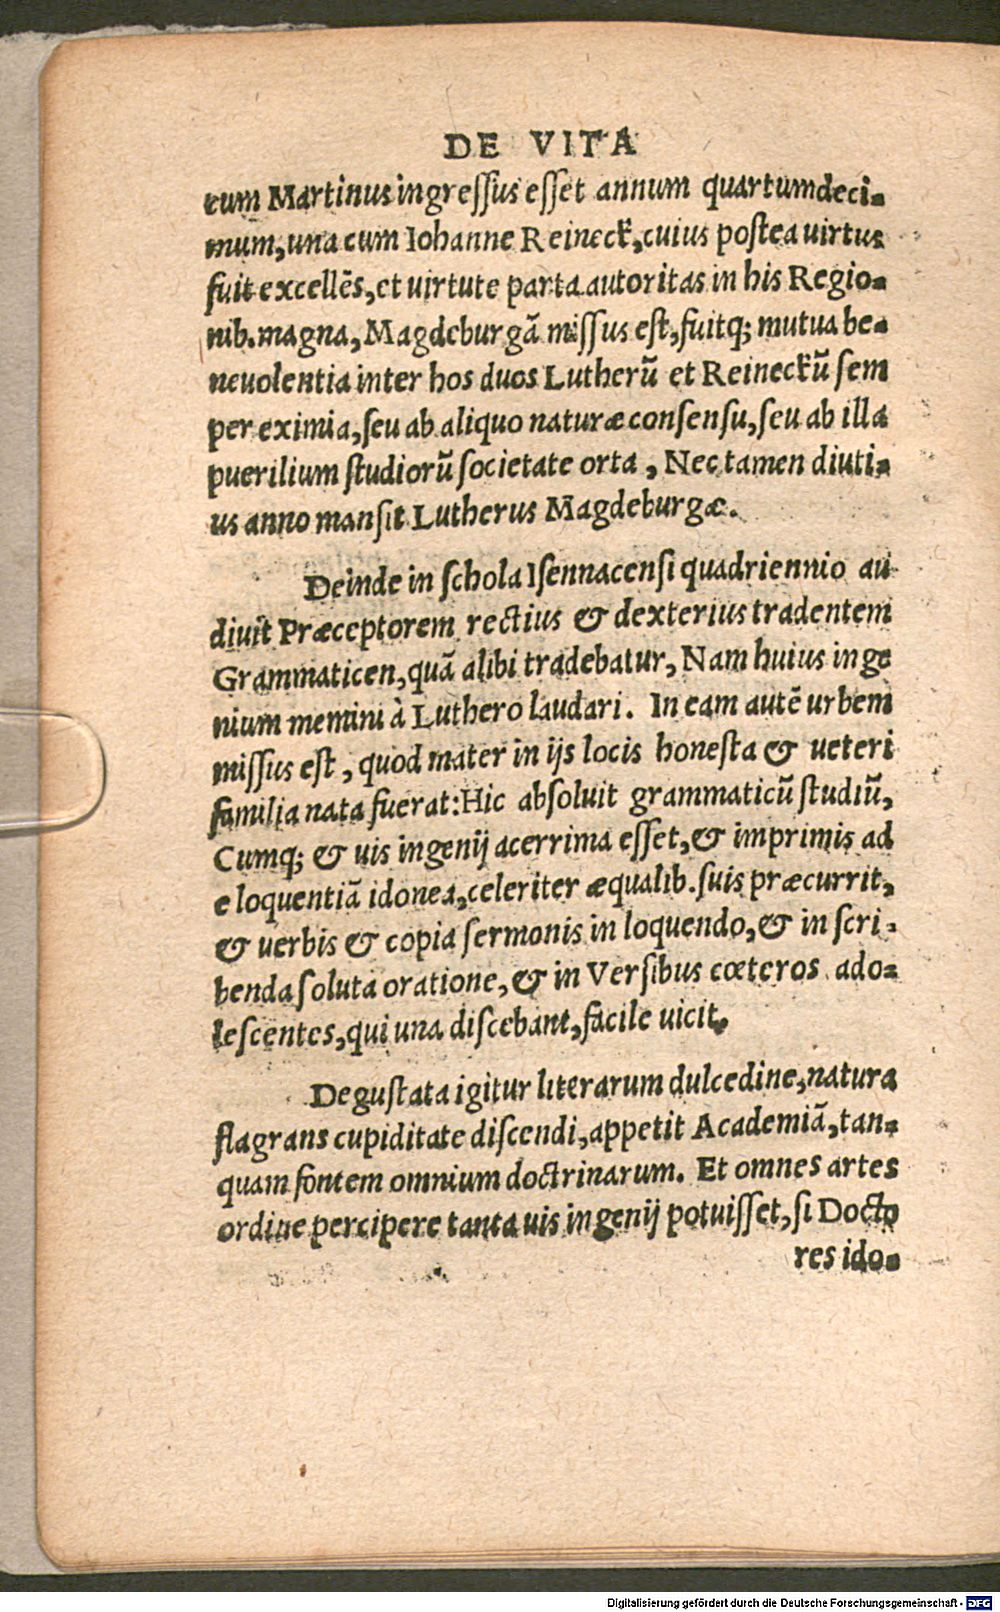 DE VITA
cum Martinus ingressus esset annum quartumdeci-
mum, una cum Iohanne Reineck, cuius postea uirtus
fuit excellēs, et uirtute parta autoritas in his Regio-
nib. magna, Magdeburgā missus est, fuitq; mutua be-
neuolentia inter hos duos Lutherū et Reineckū sem
per eximia, seu ab aliquo naturæ consensu, seu ab illa
puerilium studiorū societate orta, Nec tamen diuti-
us anno mansit Lutherus Magdeburgæ.
Deinde in schola Isennacensi quadriennio au
diuit Præceptorem rectius & dexterius tradentem
Grammaticen, quā alibi tradebatur, Nam huius inge
nium memini à Luthero laudari. In eam autē urbem
missus est, quod mater in ijs locis honesta & ueteri
familia nata fuerat: Hic absoluit grammaticū studiū,
Cumq; & uis ingenij acerrima esset, & imprimis ad
eloquentiā idonea, celeriter æqualib. suis præcurrit,
& uerbis & copia sermonis in loquendo, & in scri-
benda soluta oratione, & in Versibus cœteros ado-
lescentes, qui una discebant, facile uicit.
Degustata igitur literarum dulcedine, natura
flagrans cupiditate discendi, appetit Academiā, tan-
quam fontem omnium doctrinarum. Et omnes artes
ordine percipere tanta uis ingenij potuisset, si Docto
res ido-
Digitalisierung gefördert durch die Deutsche Forschungsgemeinschaft - DFG